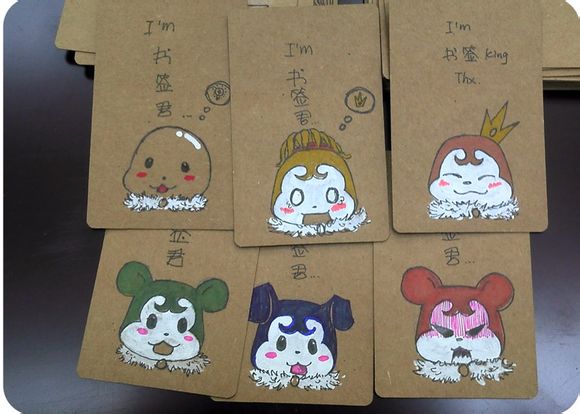 I'm
书
签
君...
I'm
书
签
君...
I'm
书签 King
Thx.
签
君
签
君...
君...